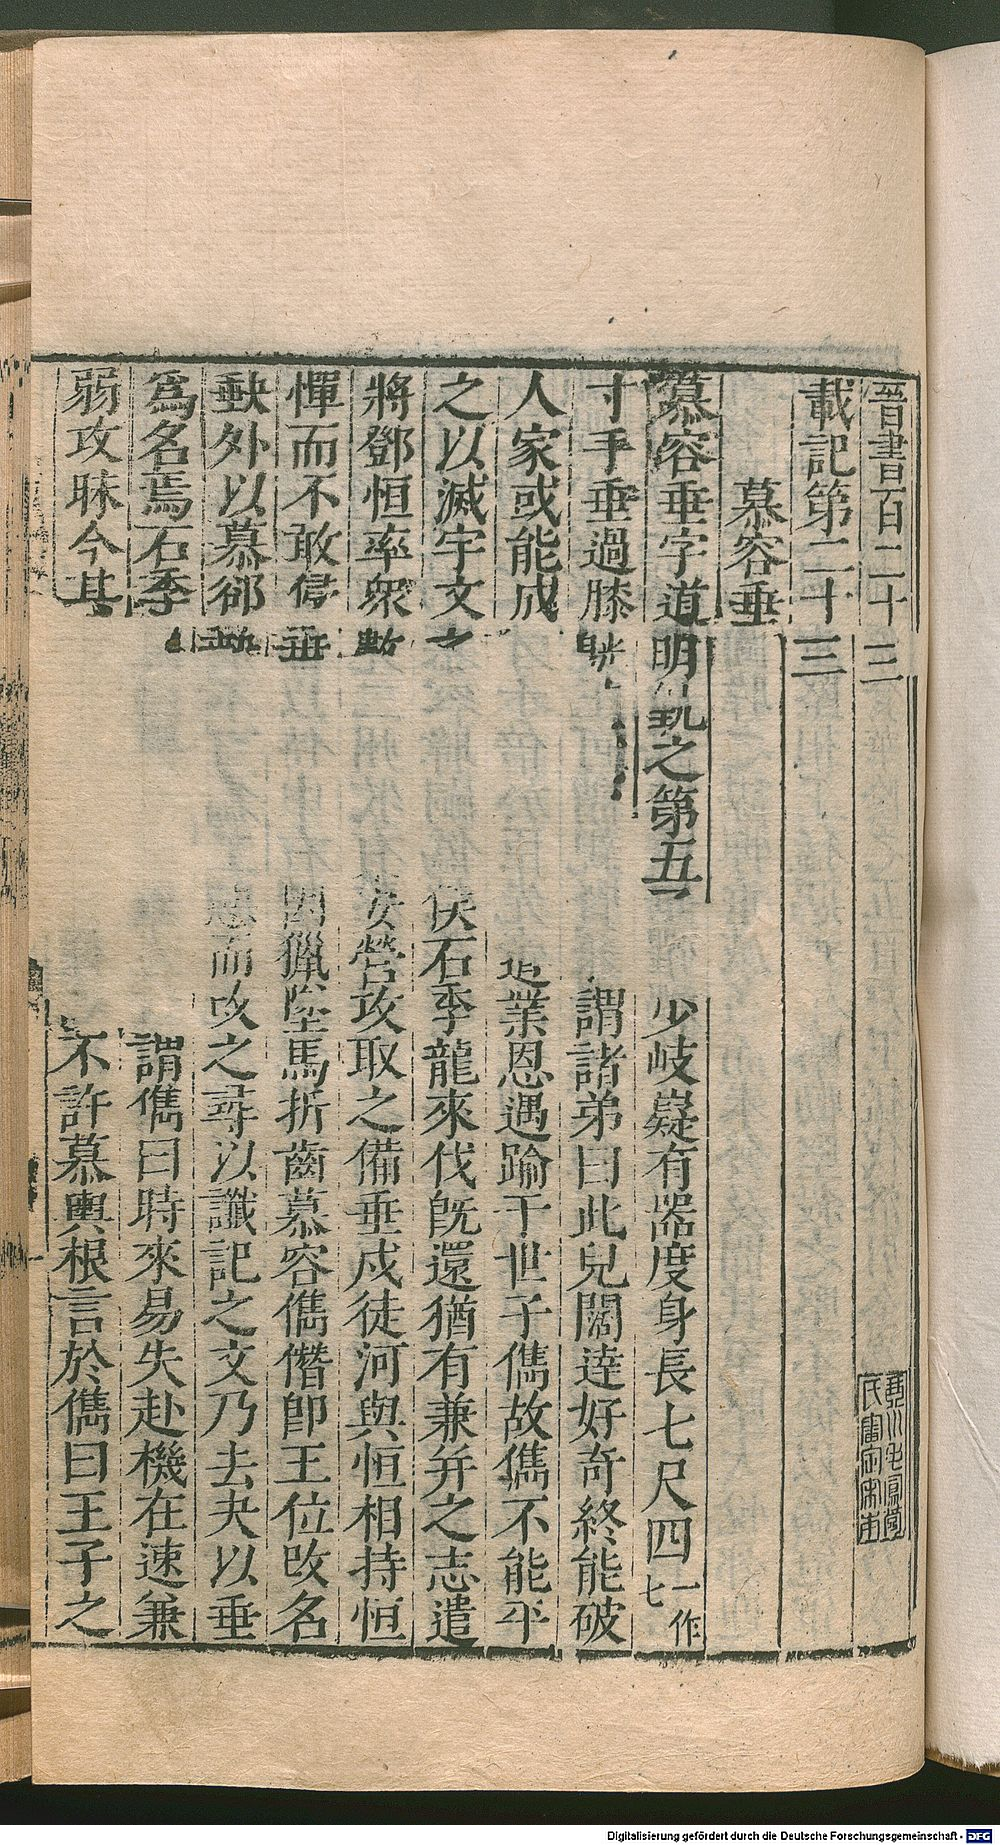 晉書百二十三
載記第二十三
慕容垂
慕容垂字道明皝之第五 少岐嶷有器度身長七尺四一作七
寸手垂過膝 謂諸弟曰此兒闊達好奇終能破
人家或能成 業恩遇踰于世子儁故儁不能平
之以滅宇文 侯石季龍來伐旣還猶有兼并之志遣
將鄧恒率衆數 安營攻取之備垂戍徒河與恒相持恒
憚而不敢侵垂 畋獵墜馬折齒慕容儁僭卽王位改名
𡙇外以慕郤 而改之尋以讖記之文乃去夬以垂
爲名焉石季 謂儁曰時來易失赴機在速兼
弱攻昧今其 不許慕輿根言於儁曰王子之
Digitalisierung gefördert durch die Deutsche Forschungsgemeinschaft - DFG